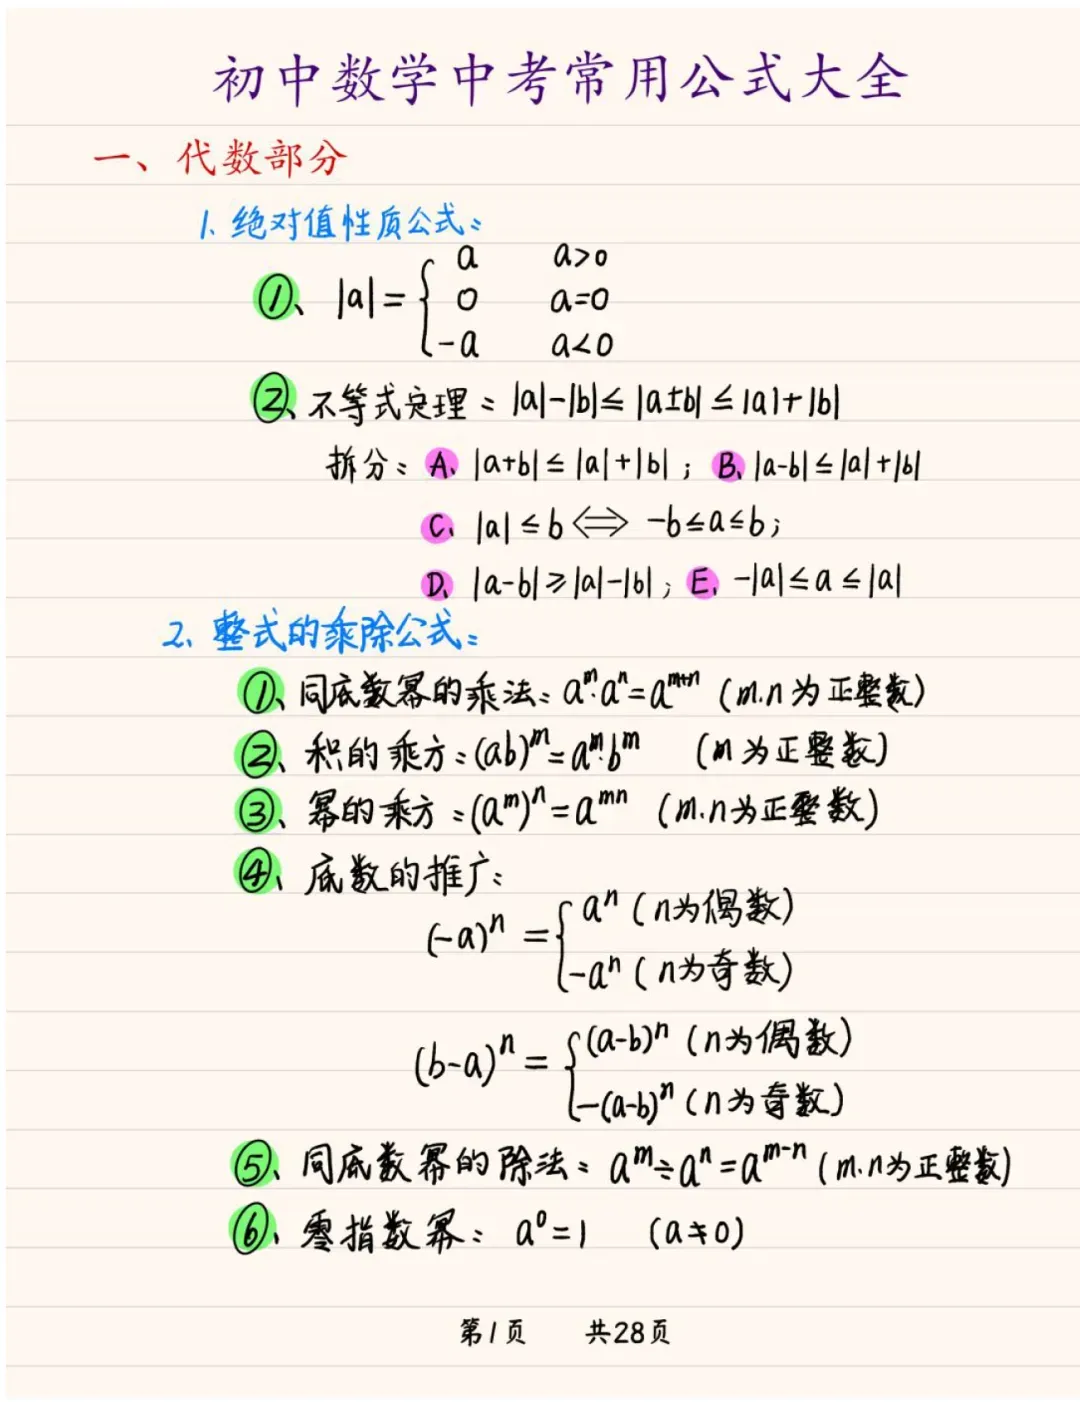 初中数学中考常用公式大全
一、代数部分
1. 绝对值性质公式:
①、|a|={ a a>0
0 a=0
-a a<0
②、不等式定理:|a|-|b|≤|a±b|≤|a|+|b|
拆分:A、|a+b|≤|a|+|b|;B、|a-b|≤|a|+|b|
C、|a|≤b⟺-b≤a≤b;
D、|a-b|≥|a|-|b|;E、-|a|≤a≤|a|
2、整式的乘除公式:
①、同底数幂的乘法:a^m·a^n=a^{m+n}(m.n为正整数)
②、积的乘方:(ab)^m=a^m·b^m (m为正整数)
③、幂的乘方:(a^m)^n=a^{mn}(m.n为正整数)
④、底数的推广:
(-a)^n={ a^n(n为偶数)
-a^n(n为奇数)
(b-a)^n={ (a-b)^n(n为偶数)
-(a-b)^n(n为奇数)
⑤、同底数幂的除法:a^m÷a^n=a^{m-n}(m.n为正整数)
⑥、零指数幂:a^0=1 (a≠0)
第1页 共28页